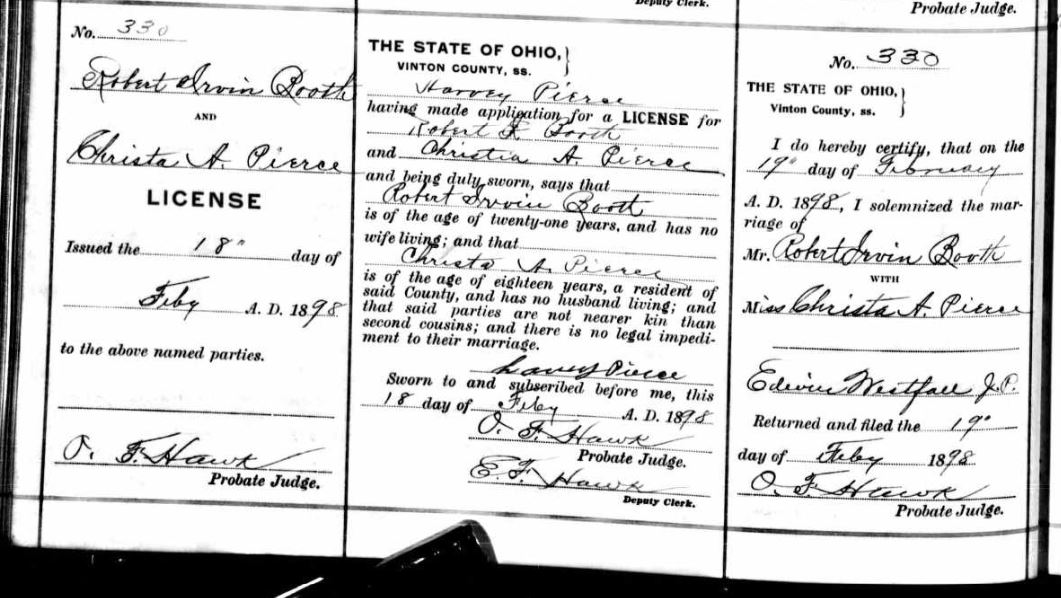 Deputy Clerk.
Probate Judge.
No. 330
Robert Irvin Booth
AND
Christa A. Pierce
LICENSE
Issued the 18" day of
Feby A. D. 1898
to the above named parties.
O. F. Hawk
Probate Judge.
THE STATE OF OHIO,
VINTON COUNTY, SS. }
Harvey Pierce
having made application for a LICENSE for
Robert I. Booth
and Christia A. Pierce
and being duly sworn, says that
Robert Irvin Booth
is of the age of twenty-one years, and has no
wife living; and that
Christa A. Pierce
is of the age of eighteen years, a resident of
said County, and has no husband living; and
that said parties are not nearer kin than
second cousins; and there is no legal impedi-
ment to their marriage.
Harvey Pierce
Sworn to and subscribed before me, this
18 day of Feby A. D. 1898
O. F. Hawk
Probate Judge.
E. F. Hawk
Deputy Clerk.
No. 330
THE STATE OF OHIO,
Vinton County, ss. }
I do hereby certify, that on the
19" day of February
A. D. 1898, I solemnized the mar-
riage of
Mr. Robert Irvin Booth
WITH
Miss Christa A. Pierce
Edwin Westfall J.P.
Returned and filed the 19"
day of Feby 1898
O. F. Hawk
Probate Judge.